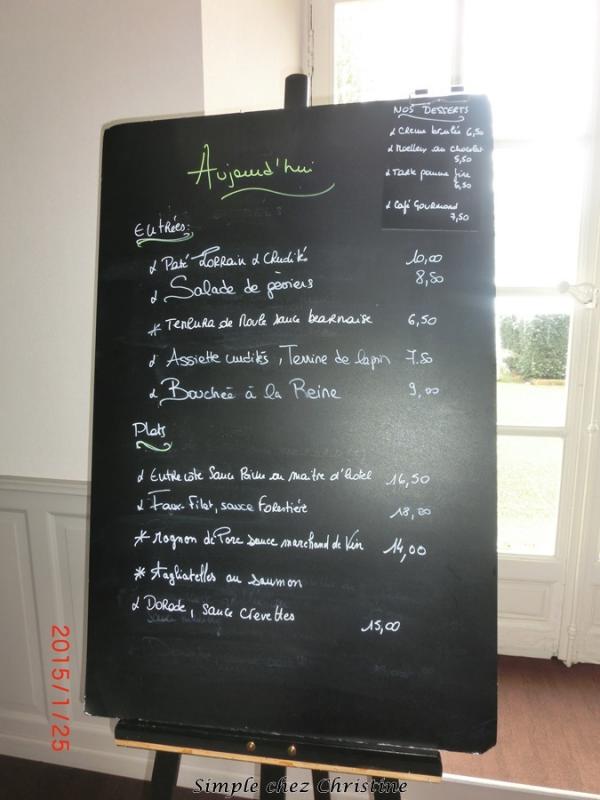 NOS DESSERTS
Crème brulée 6,50
Moelleux au chocolat
5,50
Tarte pomme fine
6,50
Café Gourmand
7,50
Aujourd'hui
Entrées:
Paté Lorrain & Crudités 10,00
Salade de gésiers 8,50
* Tempura de Moule sauce bearnaise 6,50
Assiette crudités, Terrine de lapin 7.50
Bouchée à la Reine 9,00
Plats
Entrecôte Sauce Poivre ou maitre d'hotel 16,50
Faux-Filet, sauce Forestière
* Rognon de Porc sauce marchand de Vin 14,00
* Tagliatelles au saumon
Dorade, sauce crevettes 15,00
2015/1/25
Simple chez Christine